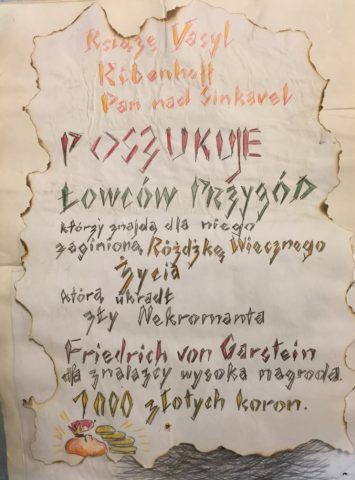 Książę Vasyl
Ribenhoff
Pan nad Sinkavel
POSZUKUJE
ŁOWCÓW PRZYGÓD
którzy znajdą dla niego
zaginioną Różdżkę Wiecznego
Życia
którą ukradł
zły Nekromanta
Friedrich von Garstein
dla znalazcy wysoka nagroda.
1000 złotych koron.